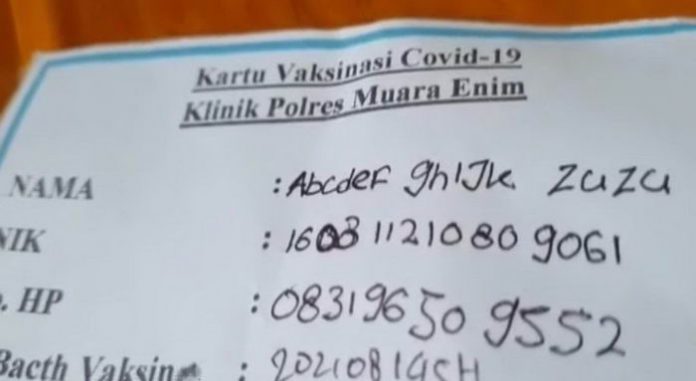 Kartu Vaksinasi Covid-19
Klinik Polres Muara Enim
NAMA : Abcdef ghIJk zuzu
NIK : 1608112108 0 9061
. HP : 0831965 0 9552
Bacth Vaksin :